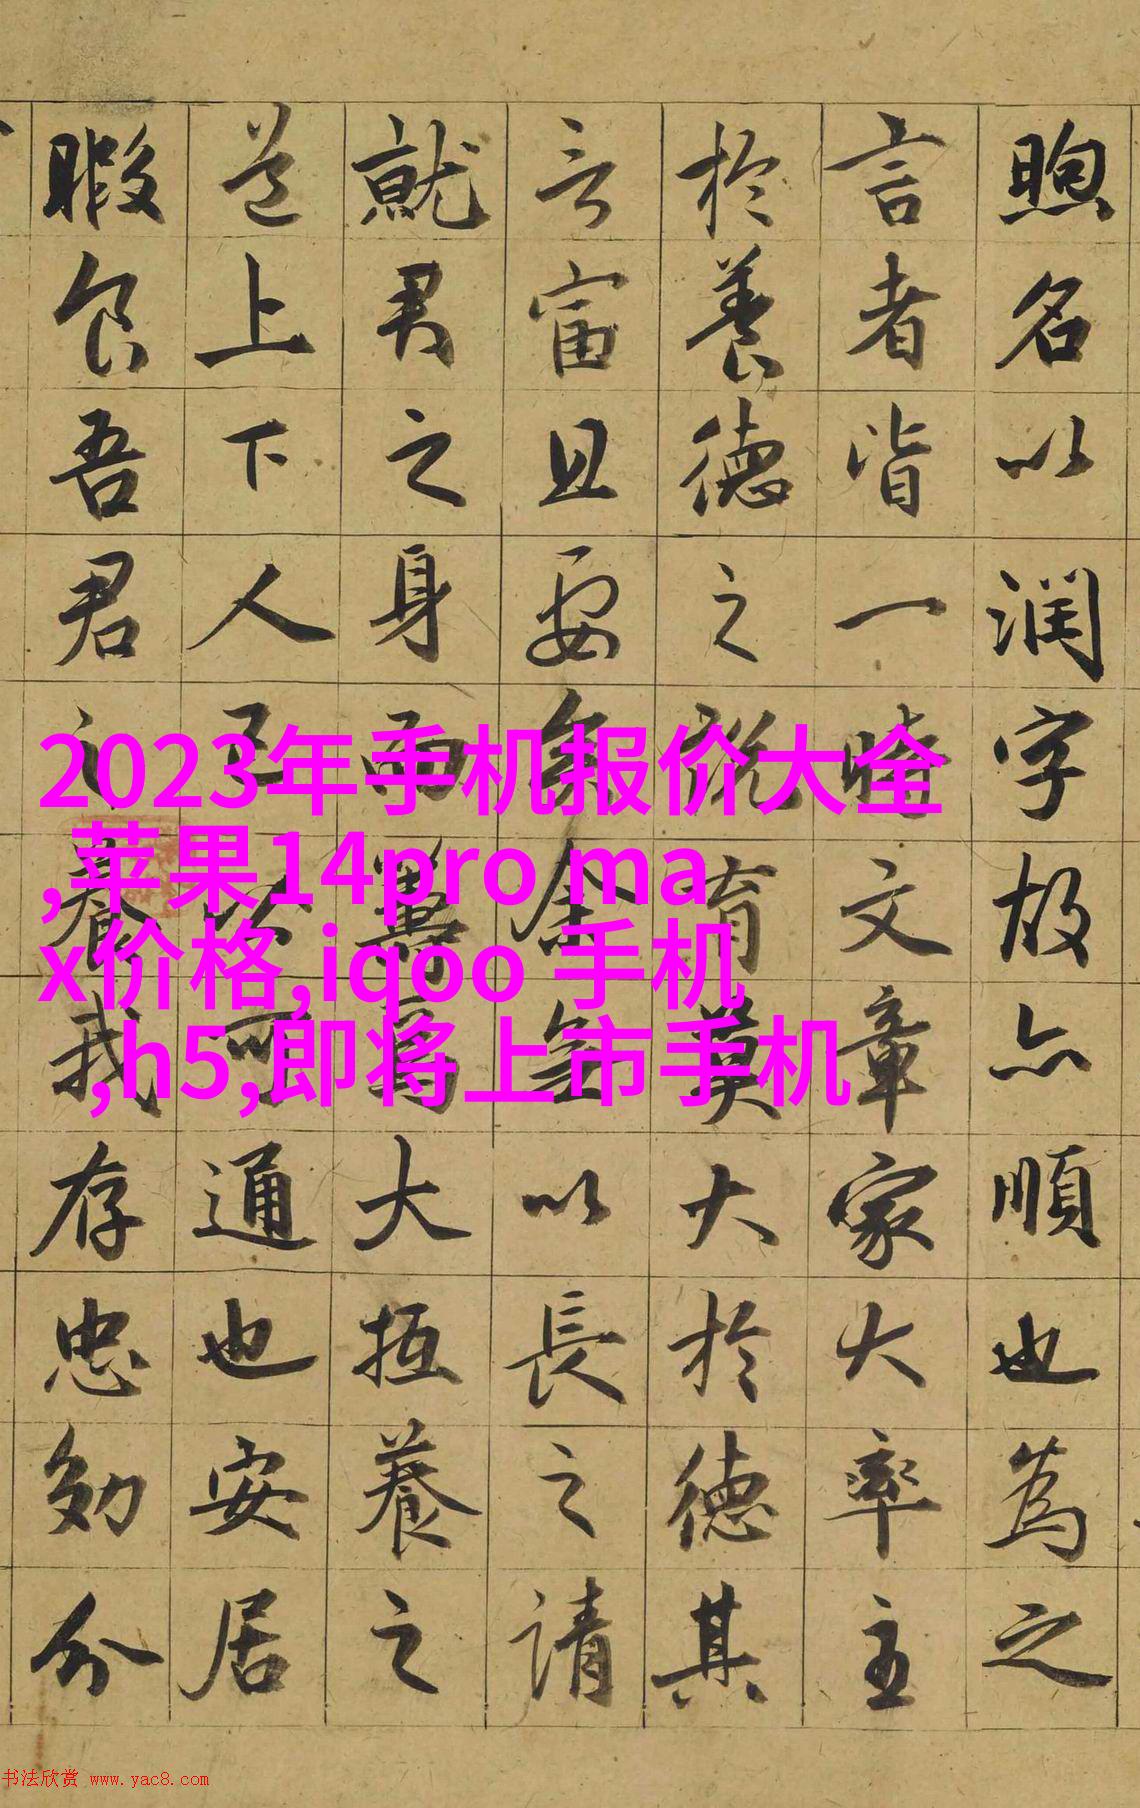 2023年手机报价大全
,苹果14pro ma
x价格,iqoo 手机
,h5,即将上市手机
煦名以潤字故亦順也為之
言者皆一時文章家大率主
於養德之說育莫大於德其
言富且要矣余奚以長之請
就君之身而焉大抵養之
道上下人己可通也安居
暇食吾君養我存忠効分
书法欣赏 www.yac8.com